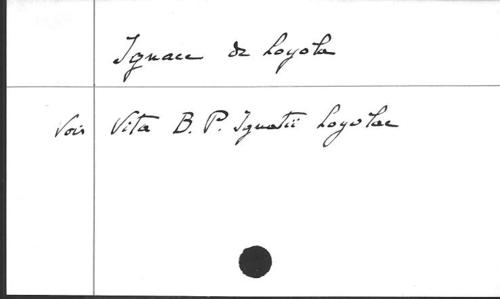 Ignace de Loyola
Voir Vita B. P. Ignatii Loyolae